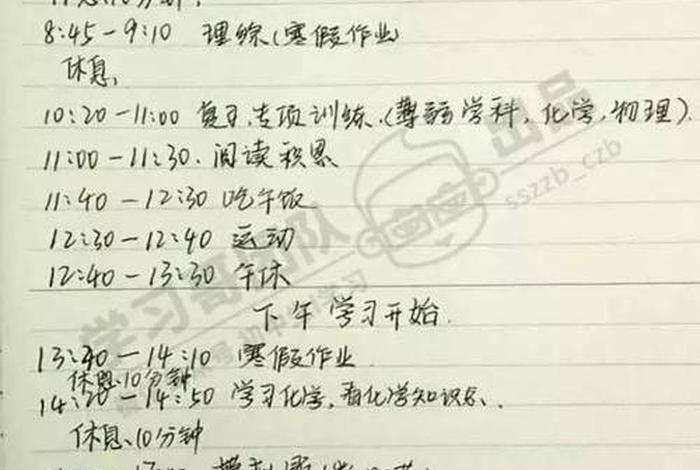 休息10分钟.
8:45-9:10 理综(寒假作业)
休息、
10:20-11:00 复习、专项训练.(薄弱学科,化学,物理).
11:00-11:30.阅读积累
11:40-12:30 吃午饭
12:30-12:40 运动
12:40-13:30 午休
下午学习开始.
13:30-14:10 寒假作业
休息、10分钟
14:20-14:50 学习化学,看化学知识点、.
休息、10分钟
学习哥团队
出品
sszzb_czb